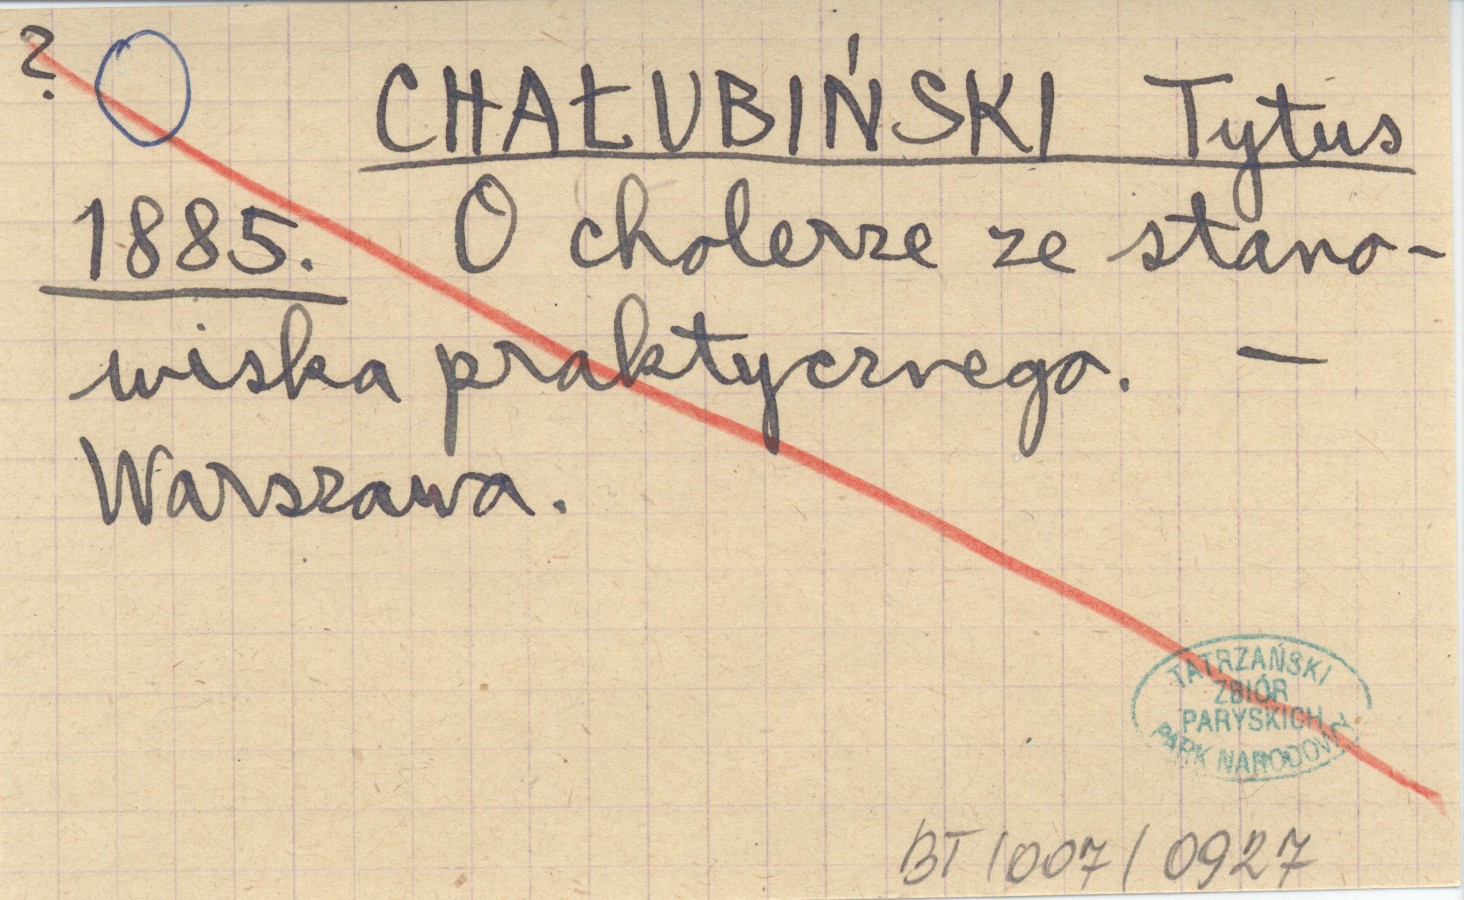 ?
CHAŁUBIŃSKI Tytus
1885. O cholerze ze stano-
wiska praktycznego. —
Warszawa.
TATRZAŃSKI
ZBIÓR
PARYSKICH
PARK NARODOWY
BT/007/0927